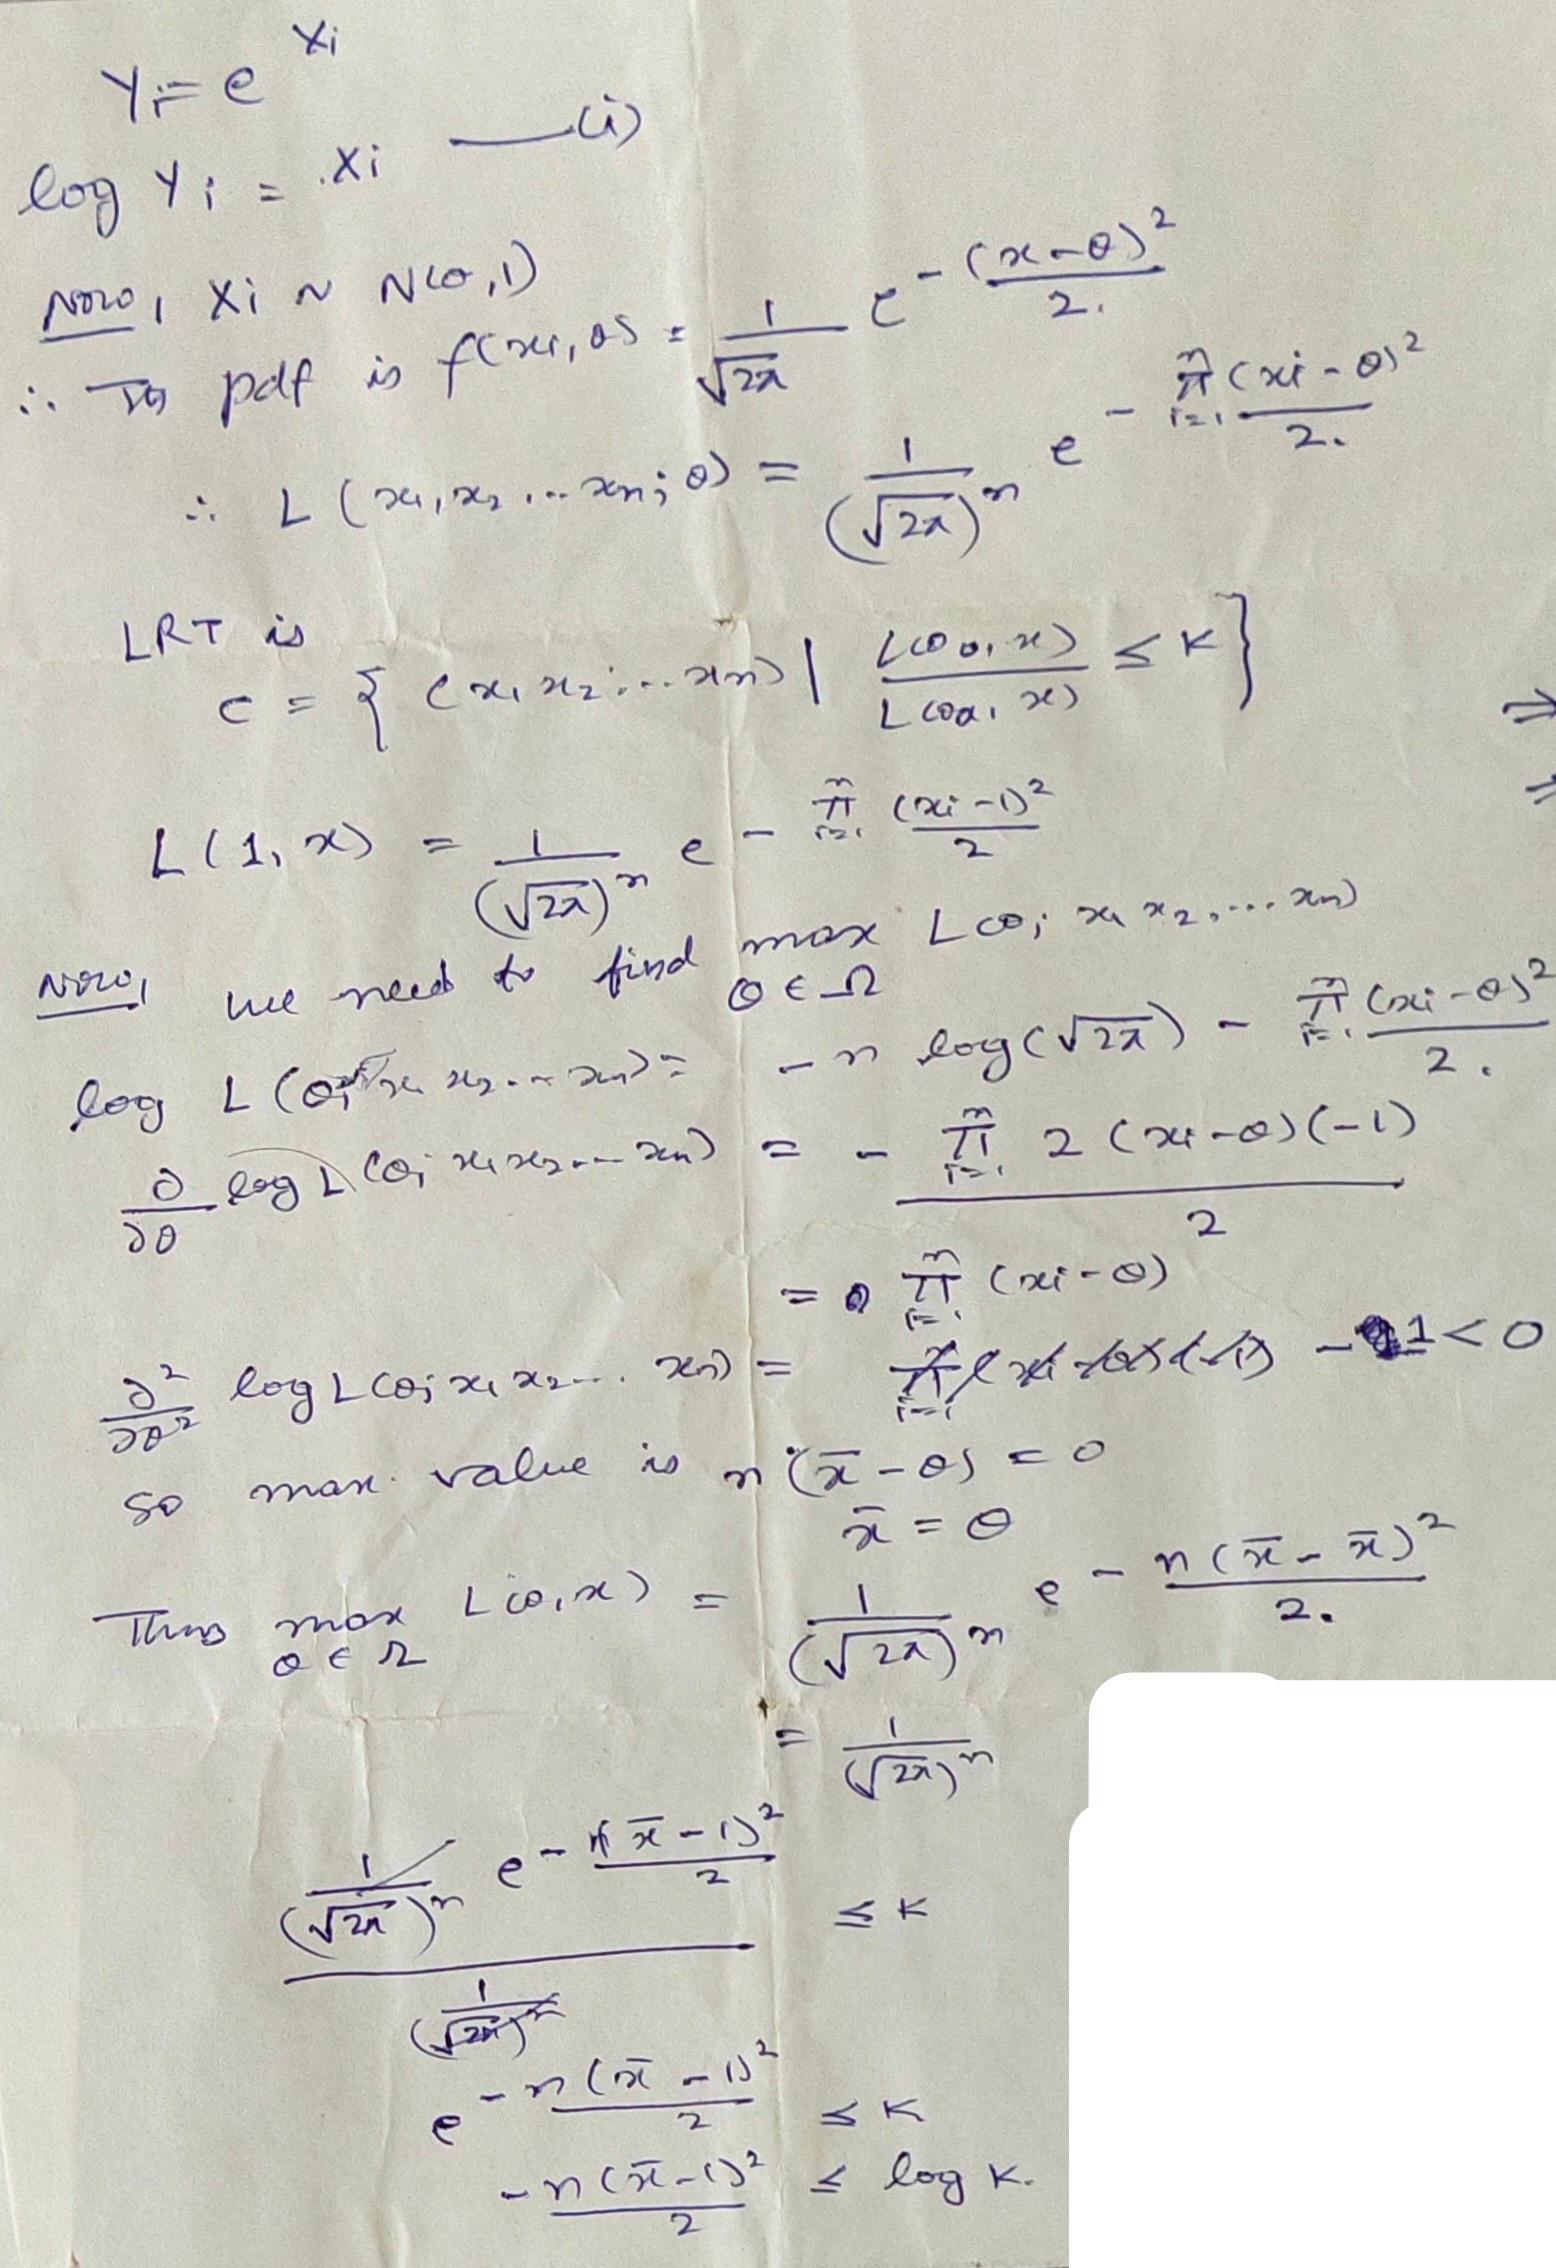 Yi = e^Xi
log Yi = Xi —(i)
Now, Xi ~ N(θ,1)
∴ Its pdf is f(xi, θ) = 1/√2π e^-(x-θ)²/2.
∴ L(x1, x2 ... xn; θ) = 1/(√2π)^n e^-π_{i=1}^n (xi-θ)²/2.
LRT is
C = { (x1 x2 ... xn) | L(θ0, x)/L(θ1, x) ≤ K } ⇒
⇒
L(1, x) = 1/(√2π)^n e^-π_{i=1}^n (xi-1)²/2
Now, we need to find max_{θ∈Ω} L(θ; x1 x2, ... xn)
log L(θ; x1 x2 ... xn) = -n log(√2π) - π_{i=1}^n (xi-θ)²/2.
∂/∂θ log L(θ; x1 x2 ... xn) = - π_{i=1}^n 2(xi-θ)(-1)/2
= π_{i=1}^n (xi-θ)
∂²/∂θ² log L(θ; x1 x2 ... xn) = -1 < 0
So max. value is n(x̄-θ) = 0
x̄ = θ
Thus max_{θ∈Ω} L(θ, x) = 1/(√2π)^n e^-n(x̄-x̄)²/2.
= 1/(√2π)^n
1/(√2π)^n e^-n(x̄-1)²/2 / 1/(√2π)^n ≤ K
e^-n(x̄-1)²/2 ≤ K
-n(x̄-1)²/2 ≤ log K.